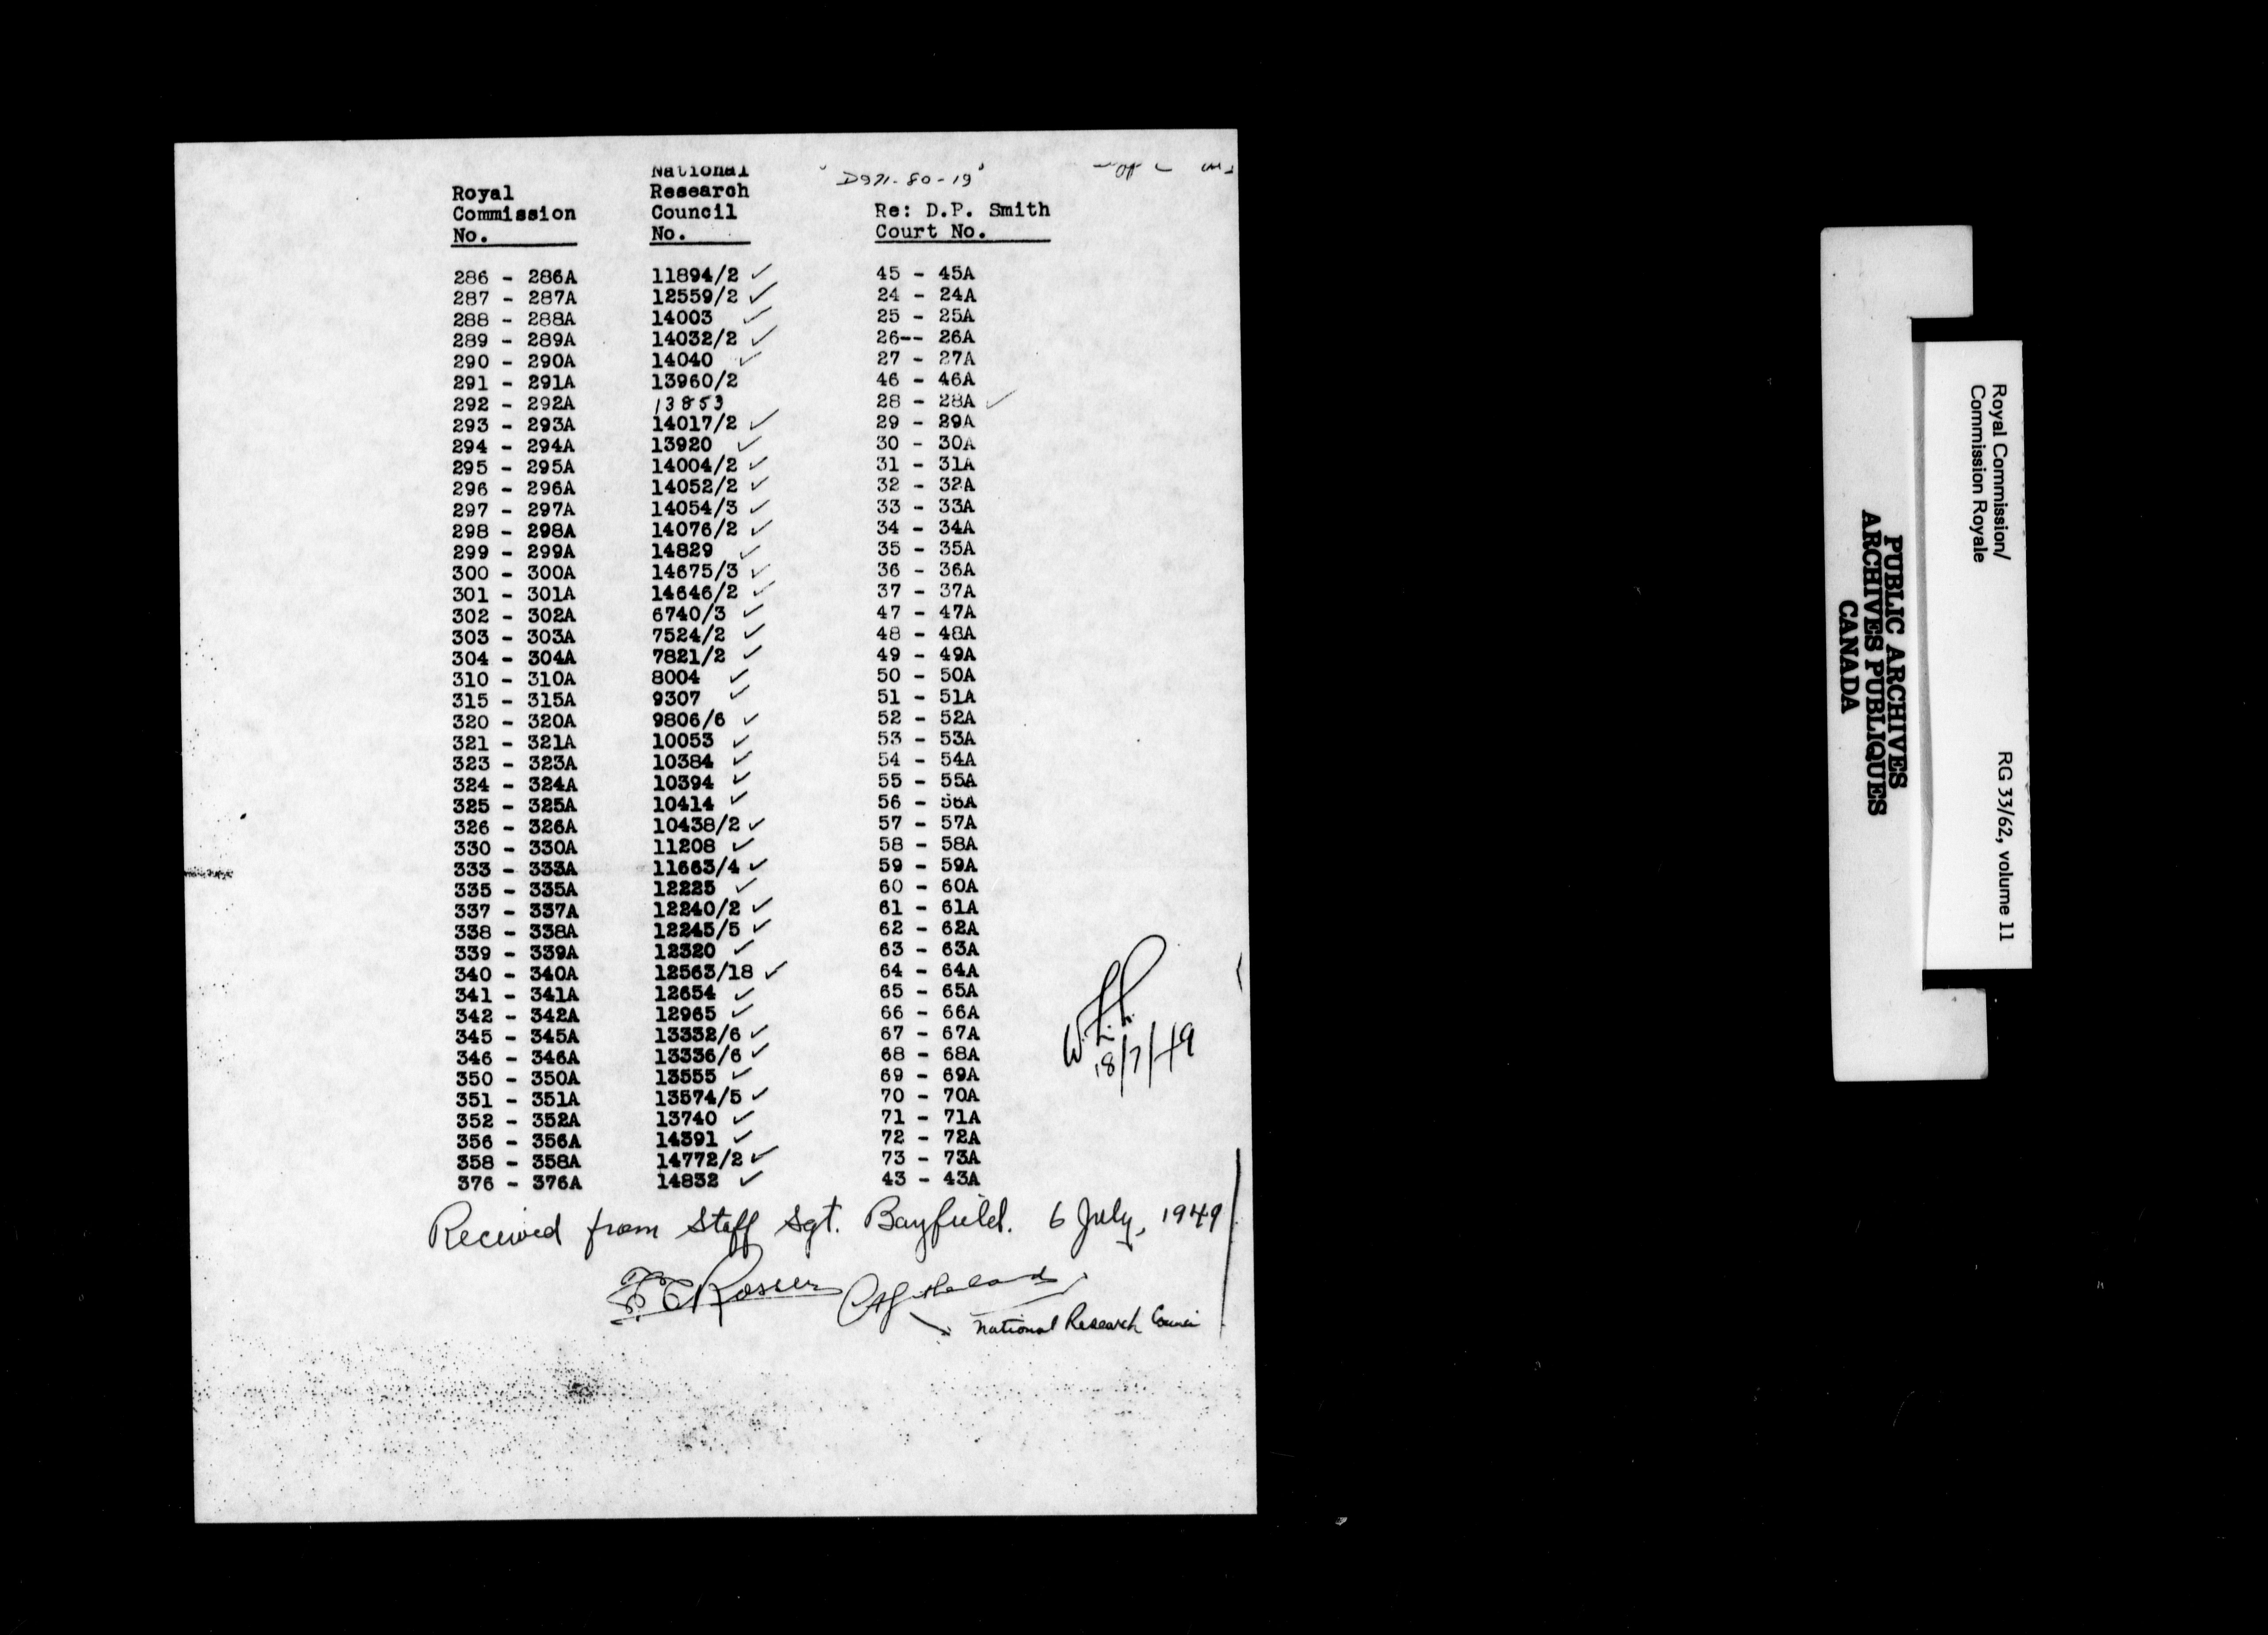 "D971-80-19"
Royal Commission No.    National Research Council No.    Re: D.P. Smith Court No.
286 - 286A    11894/2 ✓    45 - 45A
287 - 287A    12559/2 ✓    24 - 24A
288 - 288A    14003 ✓    25 - 25A
289 - 289A    14032/2 ✓    26-- 26A
290 - 290A    14040 ✓    27 - 27A
291 - 291A    13960/2    46 - 46A
292 - 292A    13853    28 - 28A ✓
293 - 293A    14017/2 ✓    29 - 29A
294 - 294A    13920 ✓    30 - 30A
295 - 295A    14004/2 ✓    31 - 31A
296 - 296A    14052/2 ✓    32 - 32A
297 - 297A    14054/3 ✓    33 - 33A
298 - 298A    14076/2 ✓    34 - 34A
299 - 299A    14829 ✓    35 - 35A
300 - 300A    14675/3 ✓    36 - 36A
301 - 301A    14646/2 ✓    37 - 37A
302 - 302A    6740/3 ✓    47 - 47A
303 - 303A    7524/2 ✓    48 - 48A
304 - 304A    7821/2 ✓    49 - 49A
310 - 310A    8004 ✓    50 - 50A
315 - 315A    9307 ✓    51 - 51A
320 - 320A    9806/6 ✓    52 - 52A
321 - 321A    10053 ✓    53 - 53A
323 - 323A    10384 ✓    54 - 54A
324 - 324A    10394 ✓    55 - 55A
325 - 325A    10414 ✓    56 - 56A
326 - 326A    10438/2 ✓    57 - 57A
330 - 330A    11208 ✓    58 - 58A
333 - 333A    11663/4 ✓    59 - 59A
335 - 335A    12225 ✓    60 - 60A
337 - 337A    12240/2 ✓    61 - 61A
338 - 338A    12245/5 ✓    62 - 62A
339 - 339A    12320 ✓    63 - 63A
340 - 340A    12563/18 ✓    64 - 64A
341 - 341A    12654 ✓    65 - 65A
342 - 342A    12965 ✓    66 - 66A
345 - 345A    13332/6 ✓    67 - 67A
346 - 346A    13336/6 ✓    68 - 68A
350 - 350A    13555 ✓    69 - 69A
351 - 351A    13574/5 ✓    70 - 70A
352 - 352A    13740 ✓    71 - 71A
356 - 356A    14391 ✓    72 - 72A
358 - 358A    14772/2 ✓    73 - 73A
376 - 376A    14832 ✓    43 - 43A
18/7/49
Received from Staff Sgt. Bayfield. 6 July, 1949
National Research Council
Royal Commission/
Commission Royale
RG 33/62, volume 11
PUBLIC ARCHIVES
ARCHIVES PUBLIQUES
CANADA